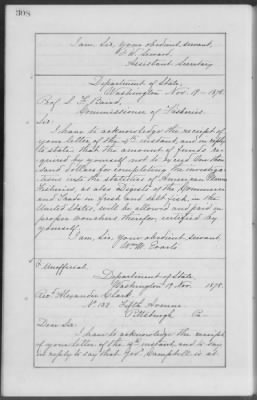 308
I am, Sir, your obedient servant,
F. W. Seward,
Assistant Secretary
Department of State,
Washington Nov. 19 - 1878.
Prof. S. F. Baird,
Commissioner of Fisheries.
Sir:
I have to acknowledge the receipt of
your letter of the 9th instant, and in reply
to state, that the amount of funds re-
quired by yourself not to exceed One thou-
sand dollars for completing the investiga-
tions into the statistics of American
Fisheries, as also Digests of the Commerce
and Trade in fresh and salt fish, in the
United States, will be allowed and paid on
proper vouchers therefor, certified by
yourself.
I am, Sir, your obedient servant
Wm. M. Evarts
Unofficial.
Department of State
Washington 19 Nov. 1878.
Rev. Alexander Clark,
No. 132 Fifth Avenue
Pittsburgh Pa.
Dear Sir:
I have to acknowledge the receipt
of your letter of the 9th instant, and to say
in reply to say that Gov. Campbell is at